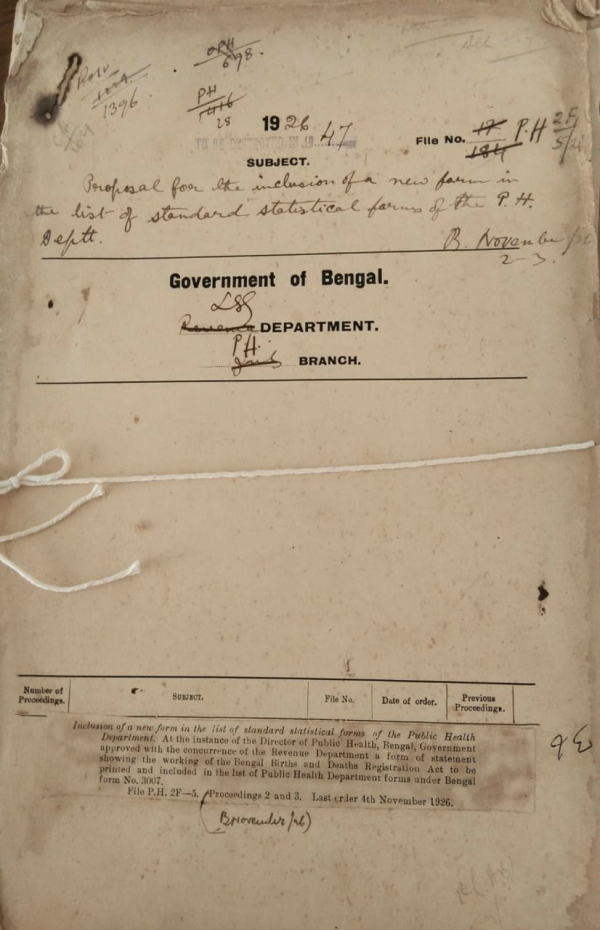 OPH
698.
1396.
PH
1416
28
1926 47
File No. 17 P.H 2F
184 5/26
SUBJECT.
Proposal for the inclusion of a new form in
the list of standard statistical forms of the P. H.
Deptt.
B. November/26
2-3.
Government of Bengal.
LSG
Revenue DEPARTMENT.
P.H.
BRANCH.
Number of Proceedings. SUBJECT. File No. Date of order. Previous Proceedings.
Inclusion of a new form in the list of standard statistical forms of the Public Health
Department. At the instance of the Director of Public Health, Bengal, Government
approved with the concurrence of the Revenue Department a form of statement
showing the working of the Bengal Births and Deaths Registration Act to be
printed and included in the list of Public Health Department forms under Bengal
form No. 3007.
File P.H. 2F—5. Proceedings 2 and 3. Last order 4th November 1926.
(B November/26)